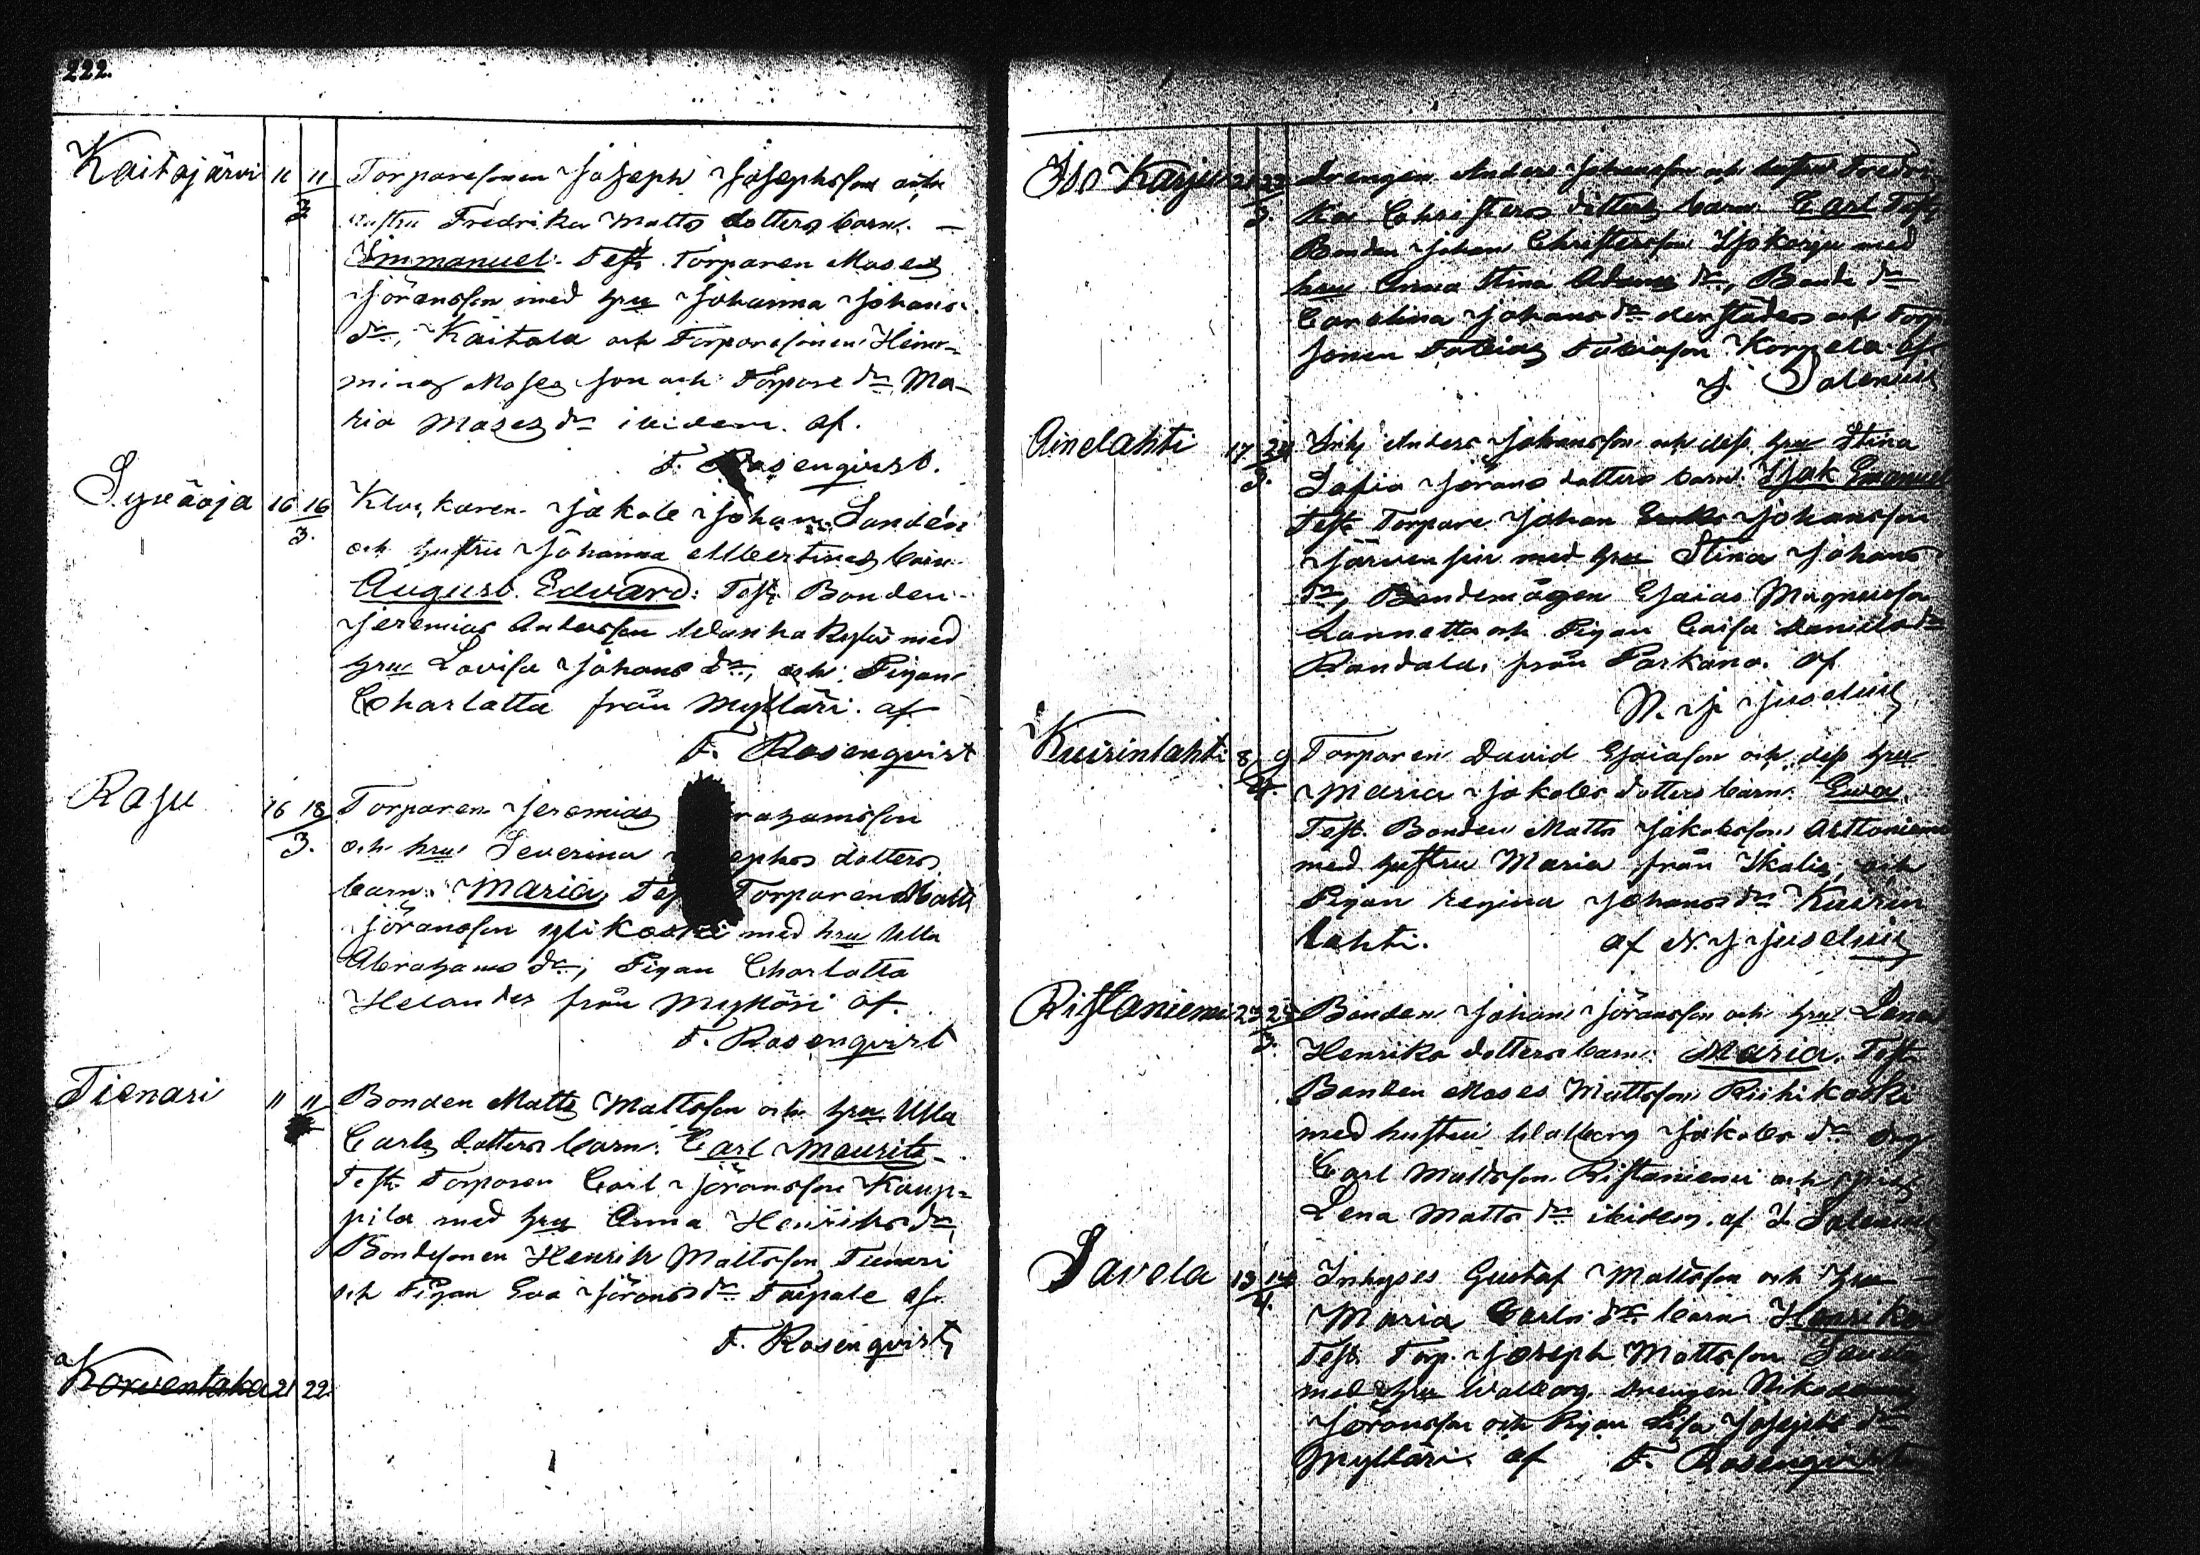 222.
Kaitojärvi 11 11/3 Torparesonen Joseph Josephsson och
hustru Fredrika Matts dotters barn. —
Immanuel. Test. Torparen Moses
Jöransson med hru Johanna Johans
dr, Kaitala och Torparesonen Him-
ming Moses son och Torpare dr Ma-
ria Moses dr ibidem. af.
F. Rosenqvist.
Syväoja 16 16/3. Klockaren Jakob Johan Sandén
och hustru Johanna Albertinas barn
August Edvard: Test. Bonden
Jeremias Andersson Wanhakylä med
hru Lovisa Johans dr, och Pigan
Charlotta från Mylläri. af
F. Rosenqvist
Rasu 16 18/3. Torparen Jeremias rahamsson
och hru Severina ephs dotters
barn. Maria, Test Torparen Matts
Jöransson Ylikoski med hru Ulla
Abrahams dr; Pigan Charlotta
Helander från af.
F. Rosenqvist
Tienari 11 11 Bonden Matts Mattsson och hru Ulla
Carls dotters barn. Carl Maurits.
Test. Torparen Carl Jöransson Kaup-
pila med hru Anna Henriks dr,
Bondesonen Henrik Mattsson Tienari
och Pigan Eva Jörans dr Taipale af.
F. Rosenqvist
Korventaka 21 22.
Iso Karju 21 22/3. Drengen Anders Johansson och hustru Fredri-
ka Christers dotters barn. Carl Test.
Bonden Johan Christersson Isokarju med
hru Anna Stina Adams dr, Bonde dr
Carolina Johans dr derstädes och Torp.
sonen Tobias Tobiasson Korpela af
J. Salenius
Ainelahti 17 24/3. Inh. Anders Johansson och dess hru Stina
Sofia Jörans dotters barn. Isak Emanuel
Test. Torpare Johan Johansson
Järvensiu med hru Stina Johans
dr, Bondemågen Esaias Magnusson
Lannetta och Pigan Caisa Daniels dr
Randala, från Parkano. af
N. J. Juselius
Kuirinlahti 8 9/4. Torparen David Esaiasson och dess hru
Maria Jakobs dotters barn. Eva.
Test. Bonden Matts Jakobsson Alttoniemi
med hustru Maria från Ikalis, och
Pigan Regina Johans dr Kuirin
lahti. af N. J. Juselius
Ristaniemi 23 25/3. Bonden Johan Jöransson och hru Lena
Henriks dotters barn. Maria. Test.
Bonden Moses Mattsson Riihikoski
med hustru Walborg Jakobs dr drg
Carl Mattsson Ristaniemi och pig
Lena Matts dr ibidem. af J. Salenius
Savela 13 14/4. Inhyses Gustaf Mattsson och hru
Maria Carls dr barn Henrika
Test. Torp. Joseph Mattsson Savela
med hru Walborg, Drengen Nikodemus
Jöransson och Pigan Lisa Josephs dr
Mylläri af F. Rosenqvist